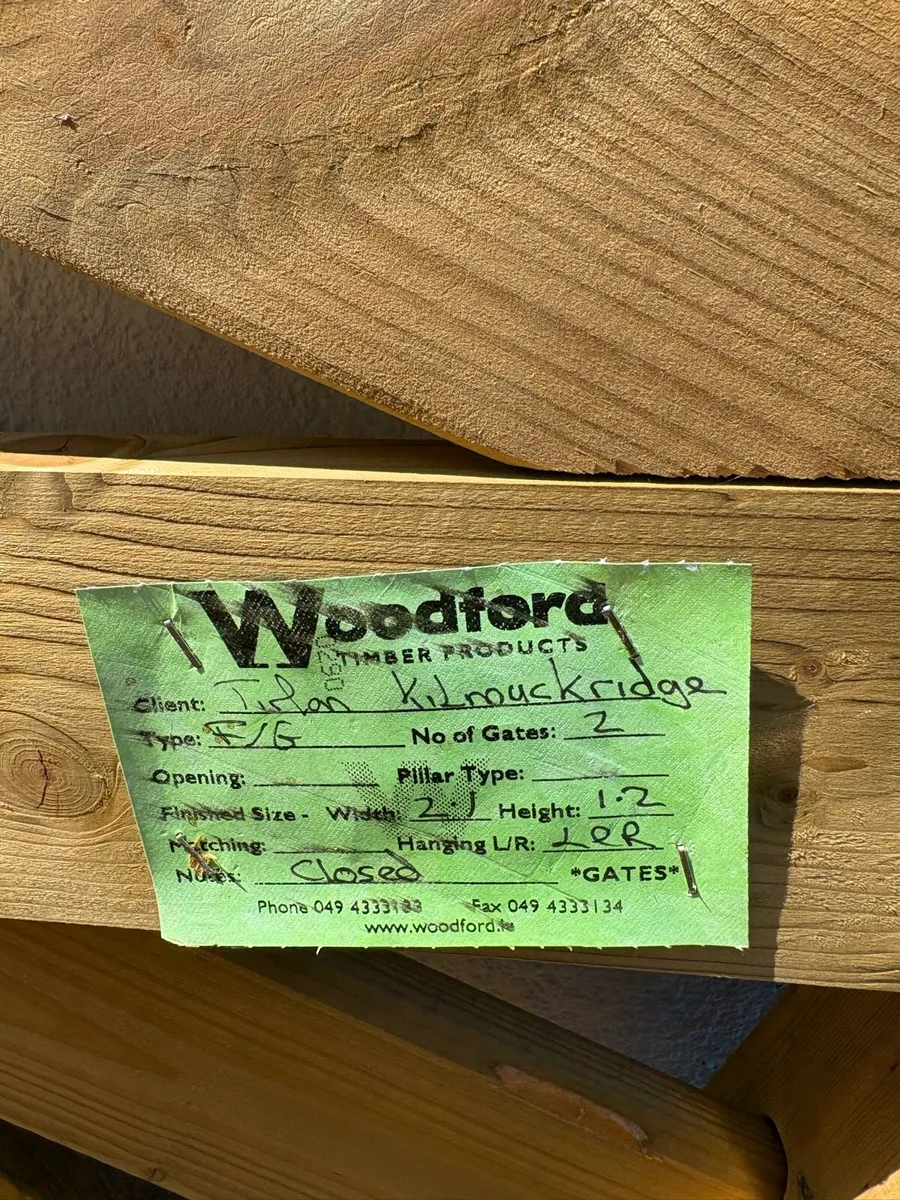 Woodford
TIMBER PRODUCTS
Client: Tirlan Kilmuckridge
Type: F/G No of Gates: 2
Opening: Pillar Type:
Finished Size - Width: 2.1 Height: 1.2
Matching: Hanging L/R: L&R
Notes: Closed *GATES*
Phone 049 4333133 Fax 049 4333134
www.woodford.ie